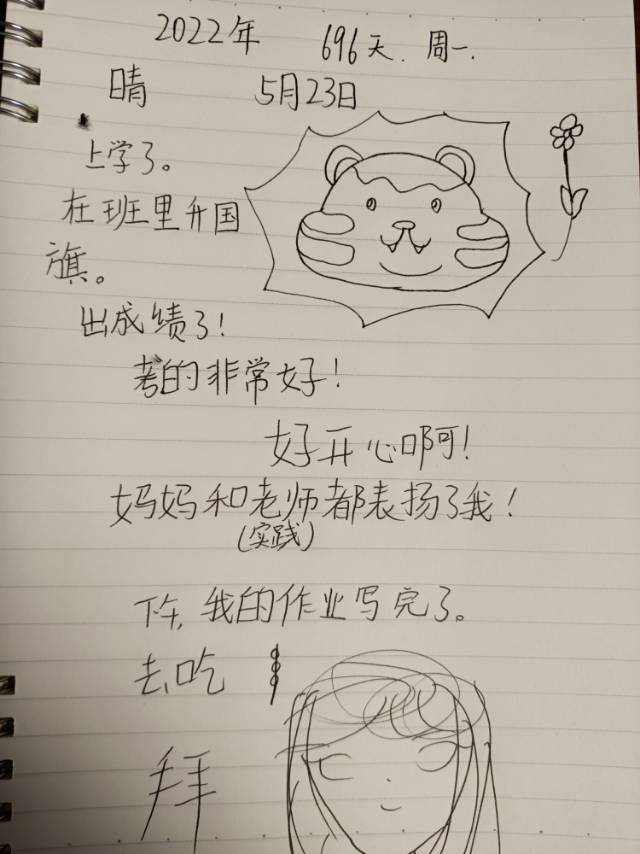 2022年 696天. 周一.
晴 5月23日
上学了。
在班里升国
旗。
出成绩了!
考的非常好!
好开心啊!
妈妈和老师都表扬了我!
(实践)
下午,我的作业写完了。
去吃
拜